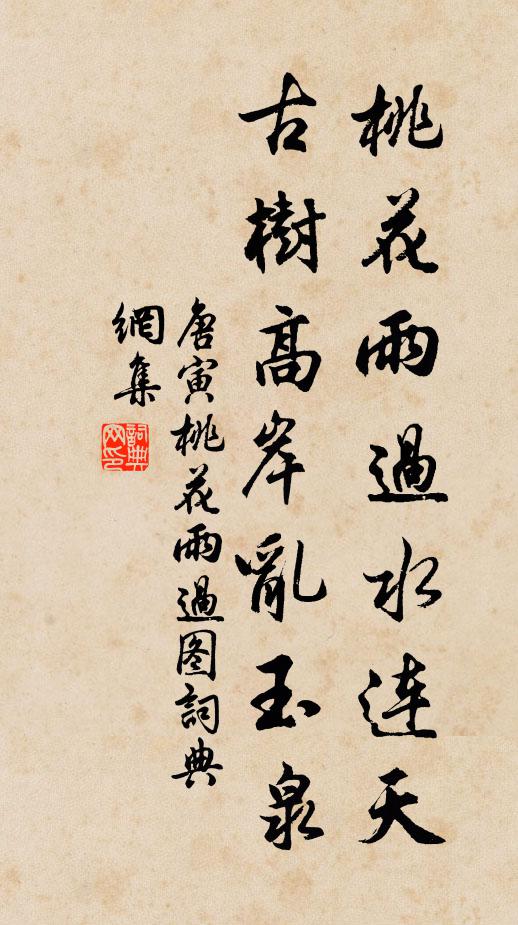 桃花雨過水連天
古樹高岸亂玉泉
唐寅桃花雨過图詞典
網集
詞典
网印